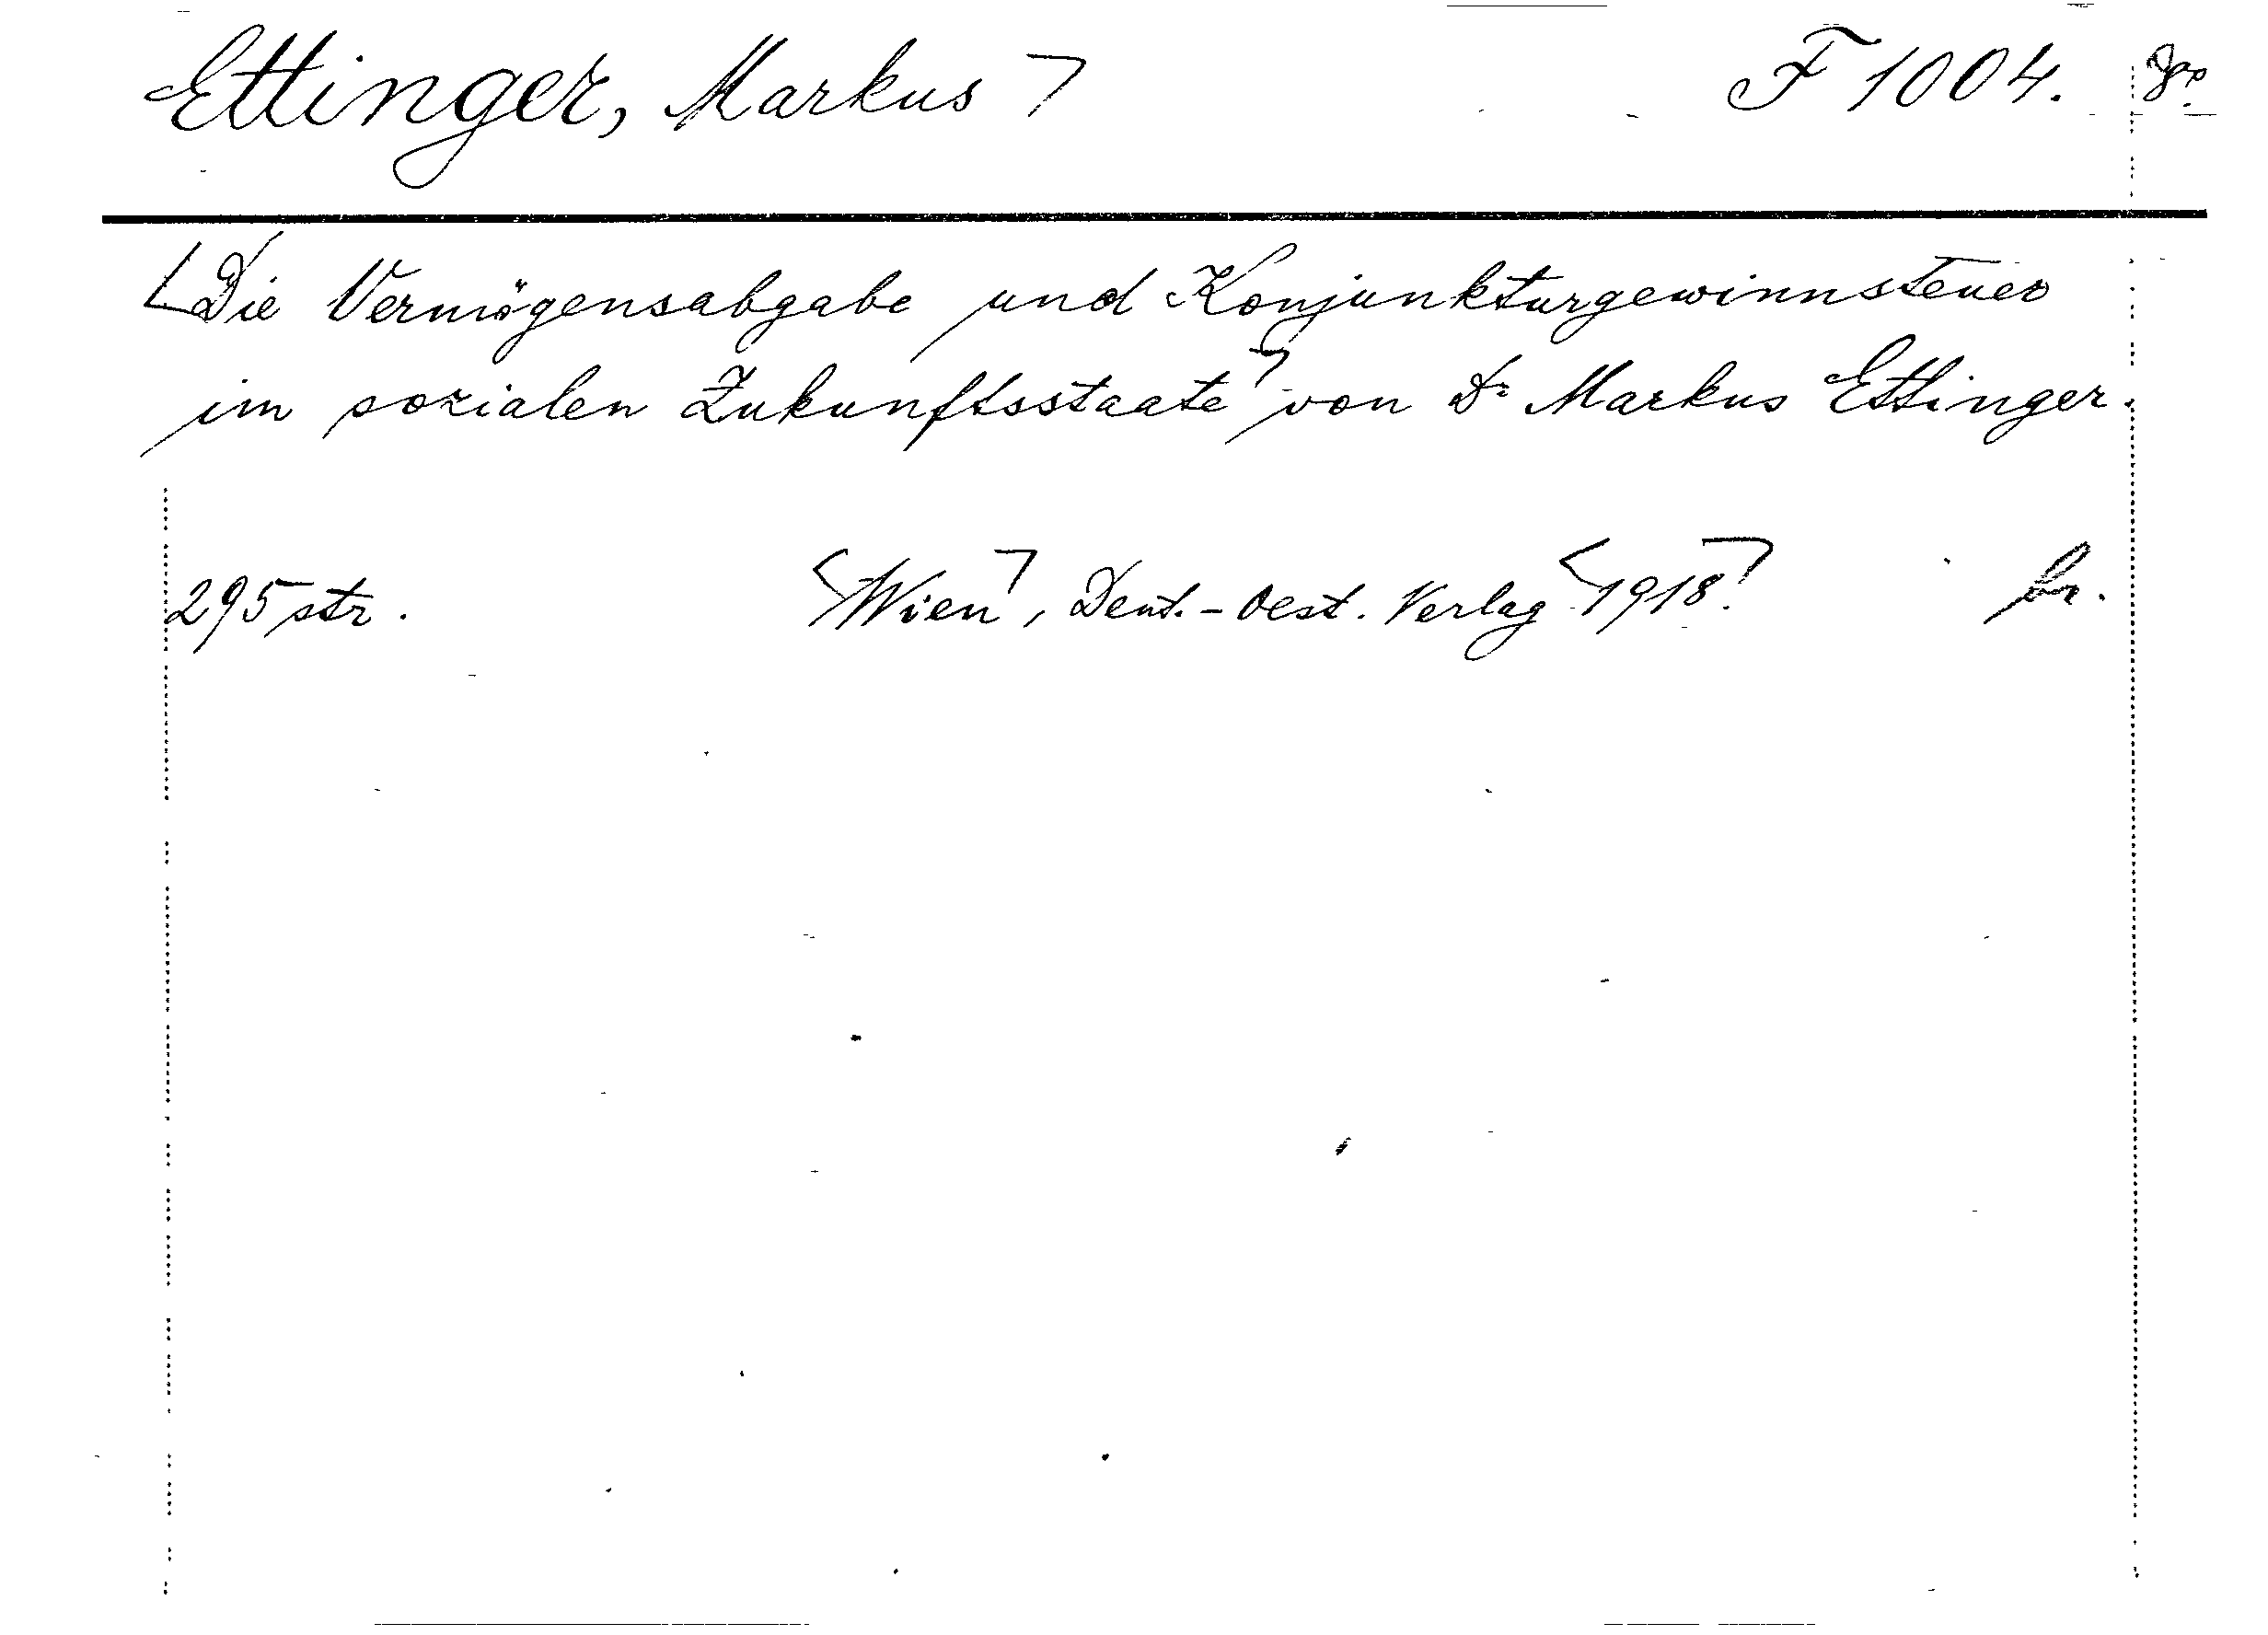 Ettinger, Markus F 1004. 8°
Die Vermögensabgabe und Konjunkturgewinnsteuer
im sozialen Zukunftsstaate von Dr Markus Ettinger.
295 str. Wien, Deut.-Oest. Verlag 1918. br.